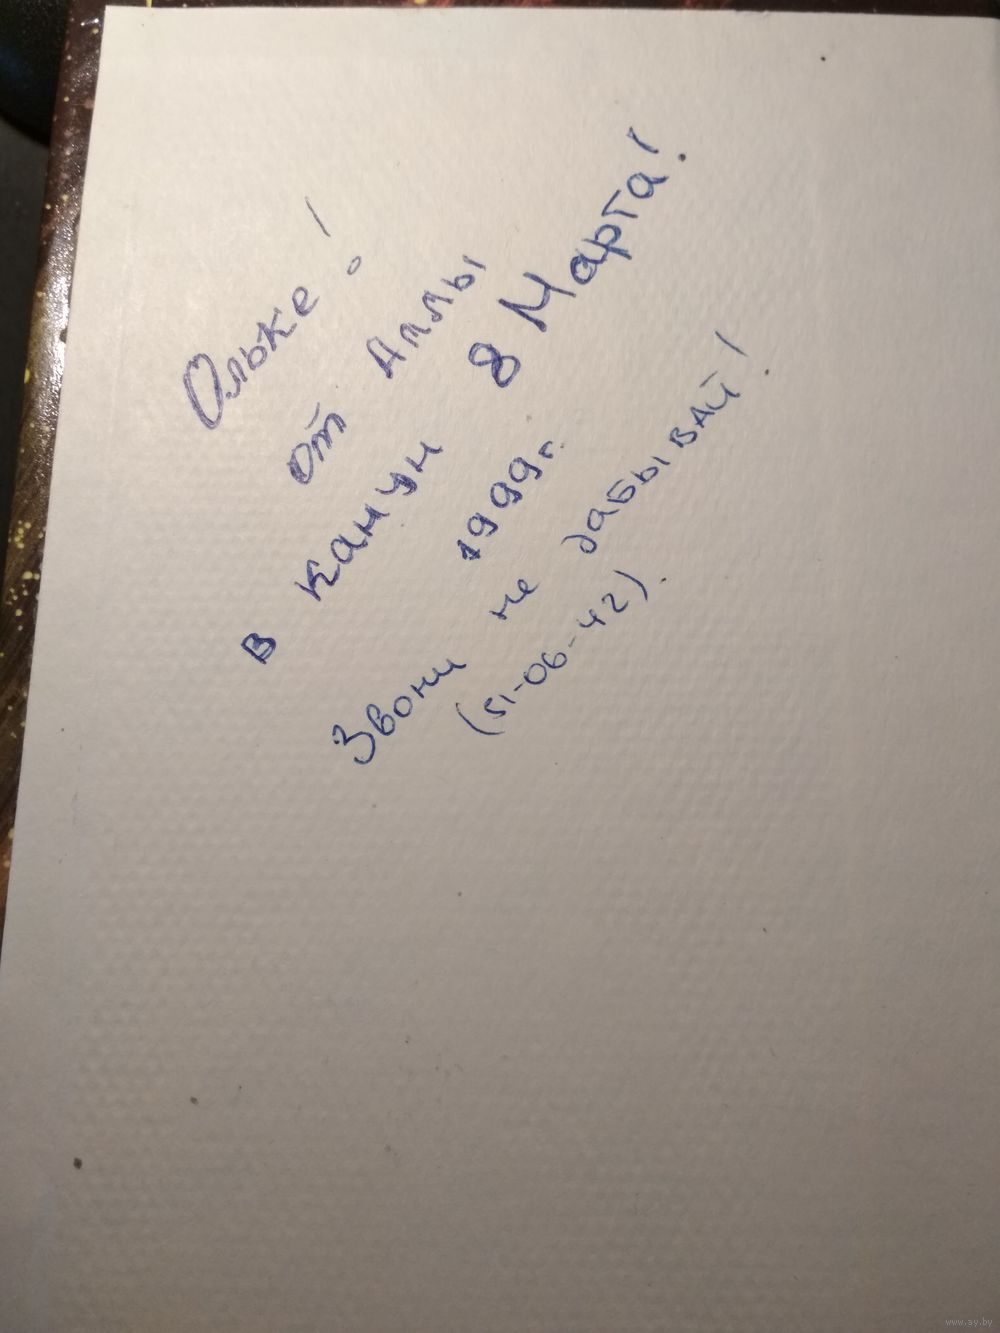 Ольке!
от Аллы
в канун 8 Марта!
1999г.
Звони не забывай!
(51-06-42).
www.ay.by